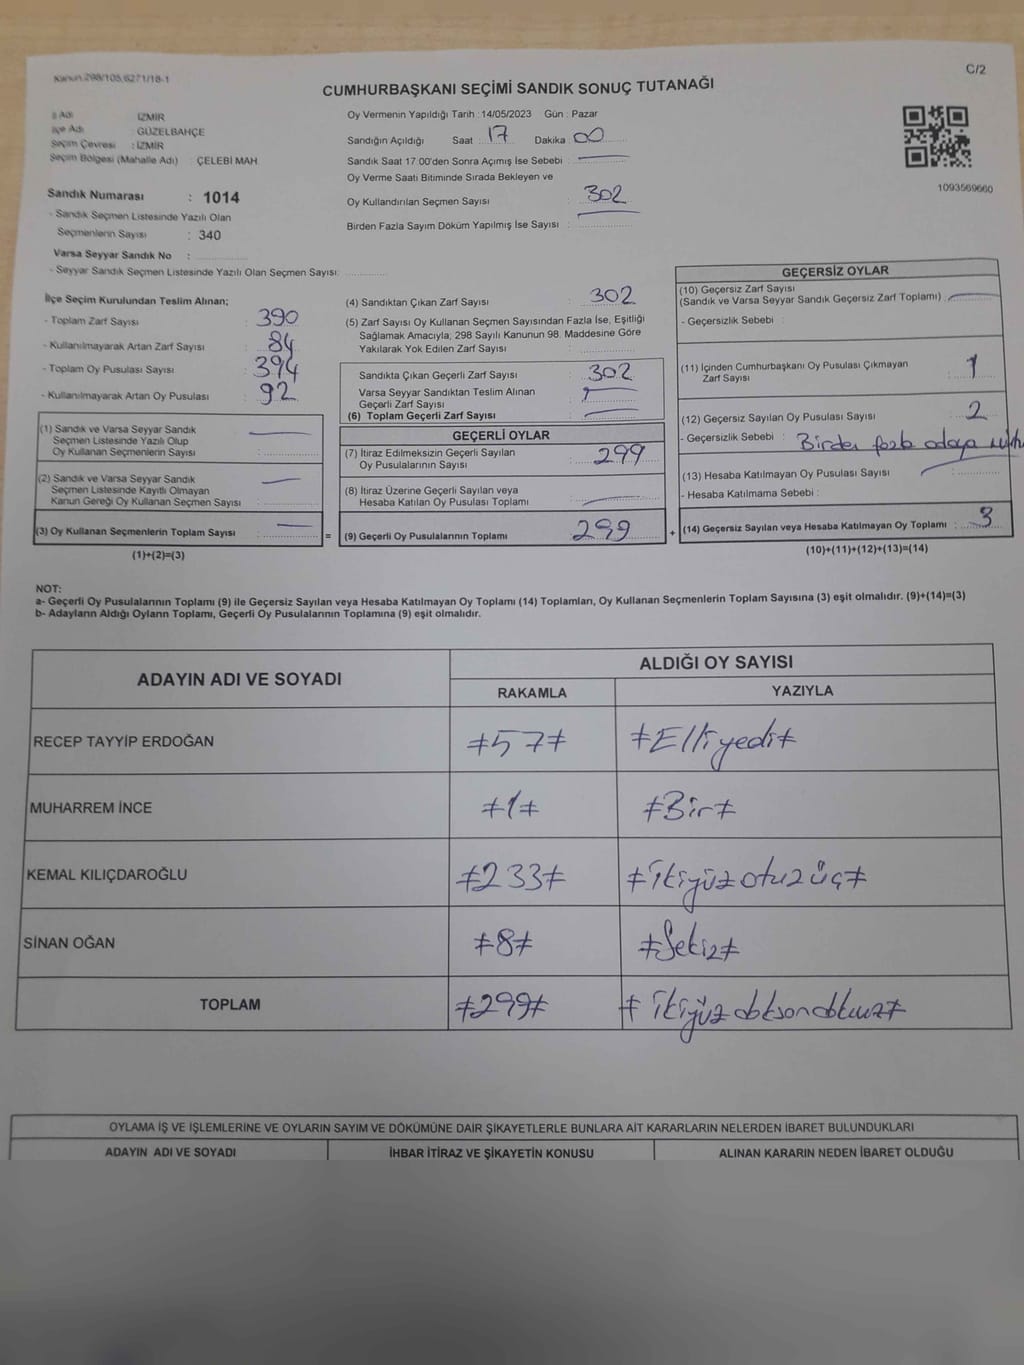 Kanun.298/105,6271/18-1
C/2
CUMHURBAŞKANI SEÇİMİ SANDIK SONUÇ TUTANAĞI
İl Adı : İZMİR
İlçe Adı : GÜZELBAHÇE
Seçim Çevresi : İZMİR
Seçim Bölgesi (Mahalle Adı) : ÇELEBİ MAH.
Sandık Numarası : 1014
- Sandık Seçmen Listesinde Yazılı Olan
Seçmenlerin Sayısı : 340
Varsa Seyyar Sandık No :
- Seyyar Sandık Seçmen Listesinde Yazılı Olan Seçmen Sayısı:
Oy Vermenin Yapıldığı Tarih : 14/05/2023 Gün : Pazar
Sandığın Açıldığı Saat : 17 Dakika : 00
Sandık Saat 17:00'den Sonra Açımış İse Sebebi :
Oy Verme Saati Bitiminde Sırada Bekleyen ve
Oy Kullandırılan Seçmen Sayısı : 302
Birden Fazla Sayım Döküm Yapılmış İse Sayısı :
1093569660
İlçe Seçim Kurulundan Teslim Alınan;
- Toplam Zarf Sayısı : 390
- Kullanılmayarak Artan Zarf Sayısı : 84
- Toplam Oy Pusulası Sayısı : 394
- Kullanılmayarak Artan Oy Pusulası : 92
(1) Sandık ve Varsa Seyyar Sandık
Seçmen Listesinde Yazılı Olup
Oy Kullanan Seçmenlerin Sayısı :
(2) Sandık ve Varsa Seyyar Sandık
Seçmen Listesinde Kayıtlı Olmayan
Kanun Gereği Oy Kullanan Seçmen Sayısı :
(3) Oy Kullanan Seçmenlerin Toplam Sayısı :
(1)+(2)=(3)
(4) Sandıktan Çıkan Zarf Sayısı : 302
(5) Zarf Sayısı Oy Kullanan Seçmen Sayısından Fazla İse, Eşitliği
Sağlamak Amacıyla; 298 Sayılı Kanunun 98. Maddesine Göre
Yakılarak Yok Edilen Zarf Sayısı :
Sandıkta Çıkan Geçerli Zarf Sayısı : 302
Varsa Seyyar Sandıktan Teslim Alınan
Geçerli Zarf Sayısı :
(6) Toplam Geçerli Zarf Sayısı :
GEÇERLİ OYLAR
(7) İtiraz Edilmeksizin Geçerli Sayılan
Oy Pusulalarının Sayısı : 299
(8) İtiraz Üzerine Geçerli Sayılan veya
Hesaba Katılan Oy Pusulası Toplamı :
= (9) Geçerli Oy Pusulalarının Toplamı : 299
GEÇERSİZ OYLAR
(10) Geçersiz Zarf Sayısı
(Sandık ve Varsa Seyyar Sandık Geçersiz Zarf Toplamı) :
- Geçersizlik Sebebi :
(11) İçinden Cumhurbaşkanı Oy Pusulası Çıkmayan
Zarf Sayısı : 1
(12) Geçersiz Sayılan Oy Pusulası Sayısı : 2
- Geçersizlik Sebebi : Birden fazla adaya
(13) Hesaba Katılmayan Oy Pusulası Sayısı :
- Hesaba Katılmama Sebebi :
+ (14) Geçersiz Sayılan veya Hesaba Katılmayan Oy Toplamı : 3
(10)+(11)+(12)+(13)=(14)
NOT:
a- Geçerli Oy Pusulalarının Toplamı (9) ile Geçersiz Sayılan veya Hesaba Katılmayan Oy Toplamı (14) Toplamları, Oy Kullanan Seçmenlerin Toplam Sayısına (3) eşit olmalıdır. (9)+(14)=(3)
b- Adayların Aldığı Oyların Toplamı, Geçerli Oy Pusulalarının Toplamına (9) eşit olmalıdır.
ADAYIN ADI VE SOYADI ALDIĞI OY SAYISI
RAKAMLA YAZIYLA
RECEP TAYYİP ERDOĞAN ≠57≠ ≠Elliyedi≠
MUHARREM İNCE ≠1≠ ≠Bir≠
KEMAL KILIÇDAROĞLU ≠233≠ ≠ikiyüzotuzüç≠
SİNAN OĞAN ≠8≠ ≠Sekiz≠
TOPLAM ≠299≠ ≠ikiyüzdoksandokuz≠
OYLAMA İŞ VE İŞLEMLERİNE VE OYLARIN SAYIM VE DÖKÜMÜNE DAİR ŞİKAYETLERLE BUNLARA AİT KARARLARIN NELERDEN İBARET BULUNDUKLARI
ADAYIN ADI VE SOYADI İHBAR İTİRAZ VE ŞİKAYETİN KONUSU ALINAN KARARIN NEDEN İBARET OLDUĞU